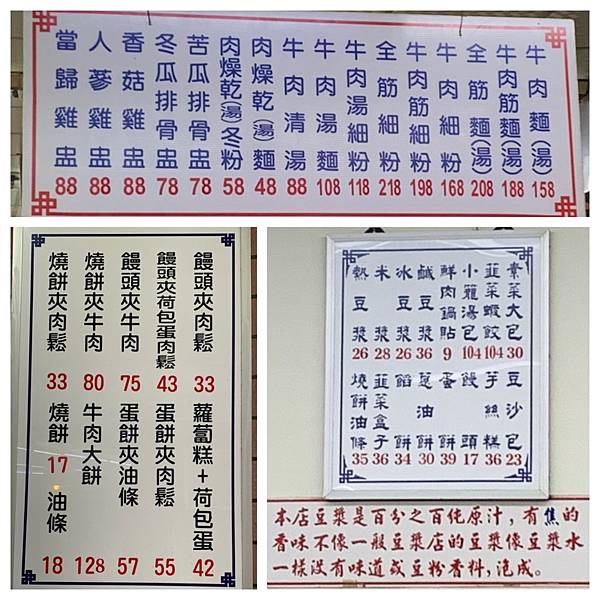 牛肉麵(湯) 158
牛肉筋麵(湯) 188
全筋麵(湯) 208
牛肉細粉 168
牛肉筋細粉 198
全筋細粉 218
牛肉湯細粉 118
牛肉湯麵 108
牛肉清湯 88
肉燥乾(湯)麵 48
肉燥乾(湯)冬粉 58
苦瓜排骨盅 78
冬瓜排骨盅 78
香菇雞盅 88
人蔘雞盅 88
當歸雞盅 88
饅頭夾肉鬆 33
饅頭夾荷包蛋肉鬆 43
饅頭夾牛肉 75
燒餅夾牛肉 80
燒餅夾肉鬆 33
蘿蔔糕+荷包蛋 42
蛋餅夾肉鬆 55
蛋餅夾油條 57
牛肉大餅 128
燒餅 17
油條 18
素菜大包 30
韮菜蝦餃 104
小籠湯包 104
鮮肉鍋貼 9
鹹豆漿 36
冰豆漿 26
米漿 28
熱豆漿 26
豆沙包 23
芋絲糕 36
饅頭 17
蛋餅 39
蔥油餅 30
餡餅 34
韮菜盒子 36
燒餅油條 35
本店豆漿是百分之百純原汁，有焦的
香味不像一般豆漿店的豆漿像豆漿水
一樣沒有味道或豆粉香料,泡成。